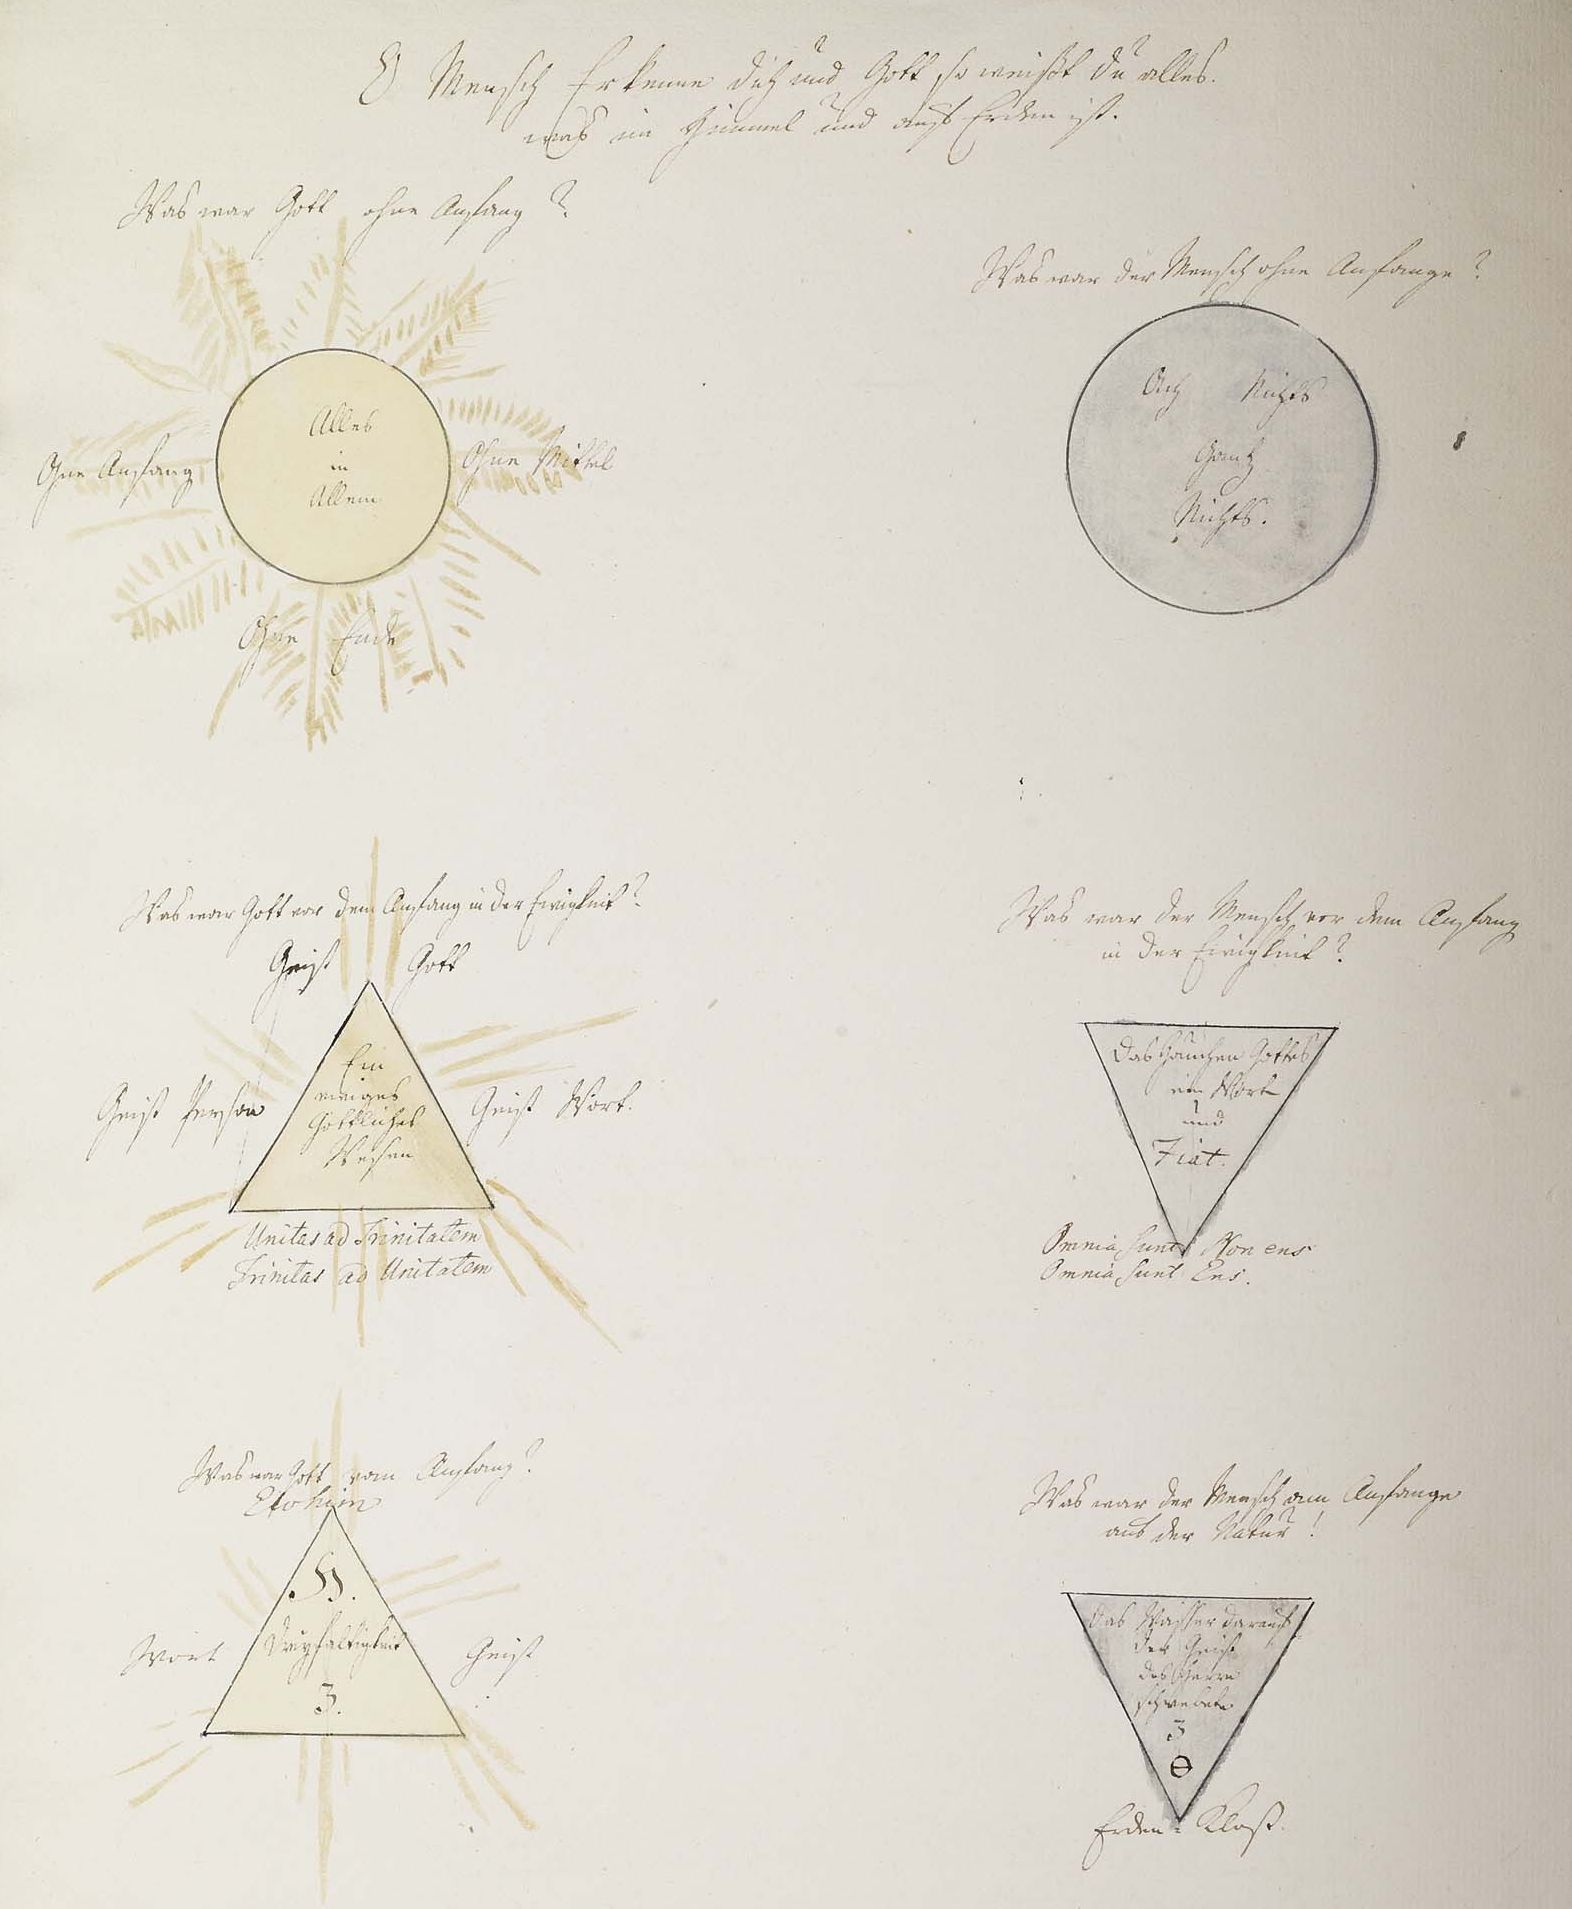 O Mensch Erkenne dich und Gott so weißt du alles.
was im Himmel und auf Erden ist.
Was war Gott ohne Anfang?
Alles
in
Allem
Ohne Anfang
Ohne Mittel
Ohne Ende
Was war der Mensch ohne Anfange?
Ach Nichts
Gantz
Nichts.
Was war Gott vor dem Anfang in der Ewigkeit?
Geist Gott
Ein
einiges
Göttliches
Wesen
Geist Person
Geist Wort.
Unitas ad Trinitatem
Trinitas ad Unitatem
Was war der Mensch vor dem Anfang
in der Ewigkeit?
Das Hauchen Gottes
ein Wort
und
Fiat.
Omnia sunt Non ens
Omnia sunt Ens.
Was war Gott vom Anfang?
Elohim
Dreyfaltigkeit
3.
Wort
Geist
Was war der Mensch am Anfange
aus der Natur!
Das Wasser darauf
der Geist
des Herrn
schwebete
3
Erden-Kloß.